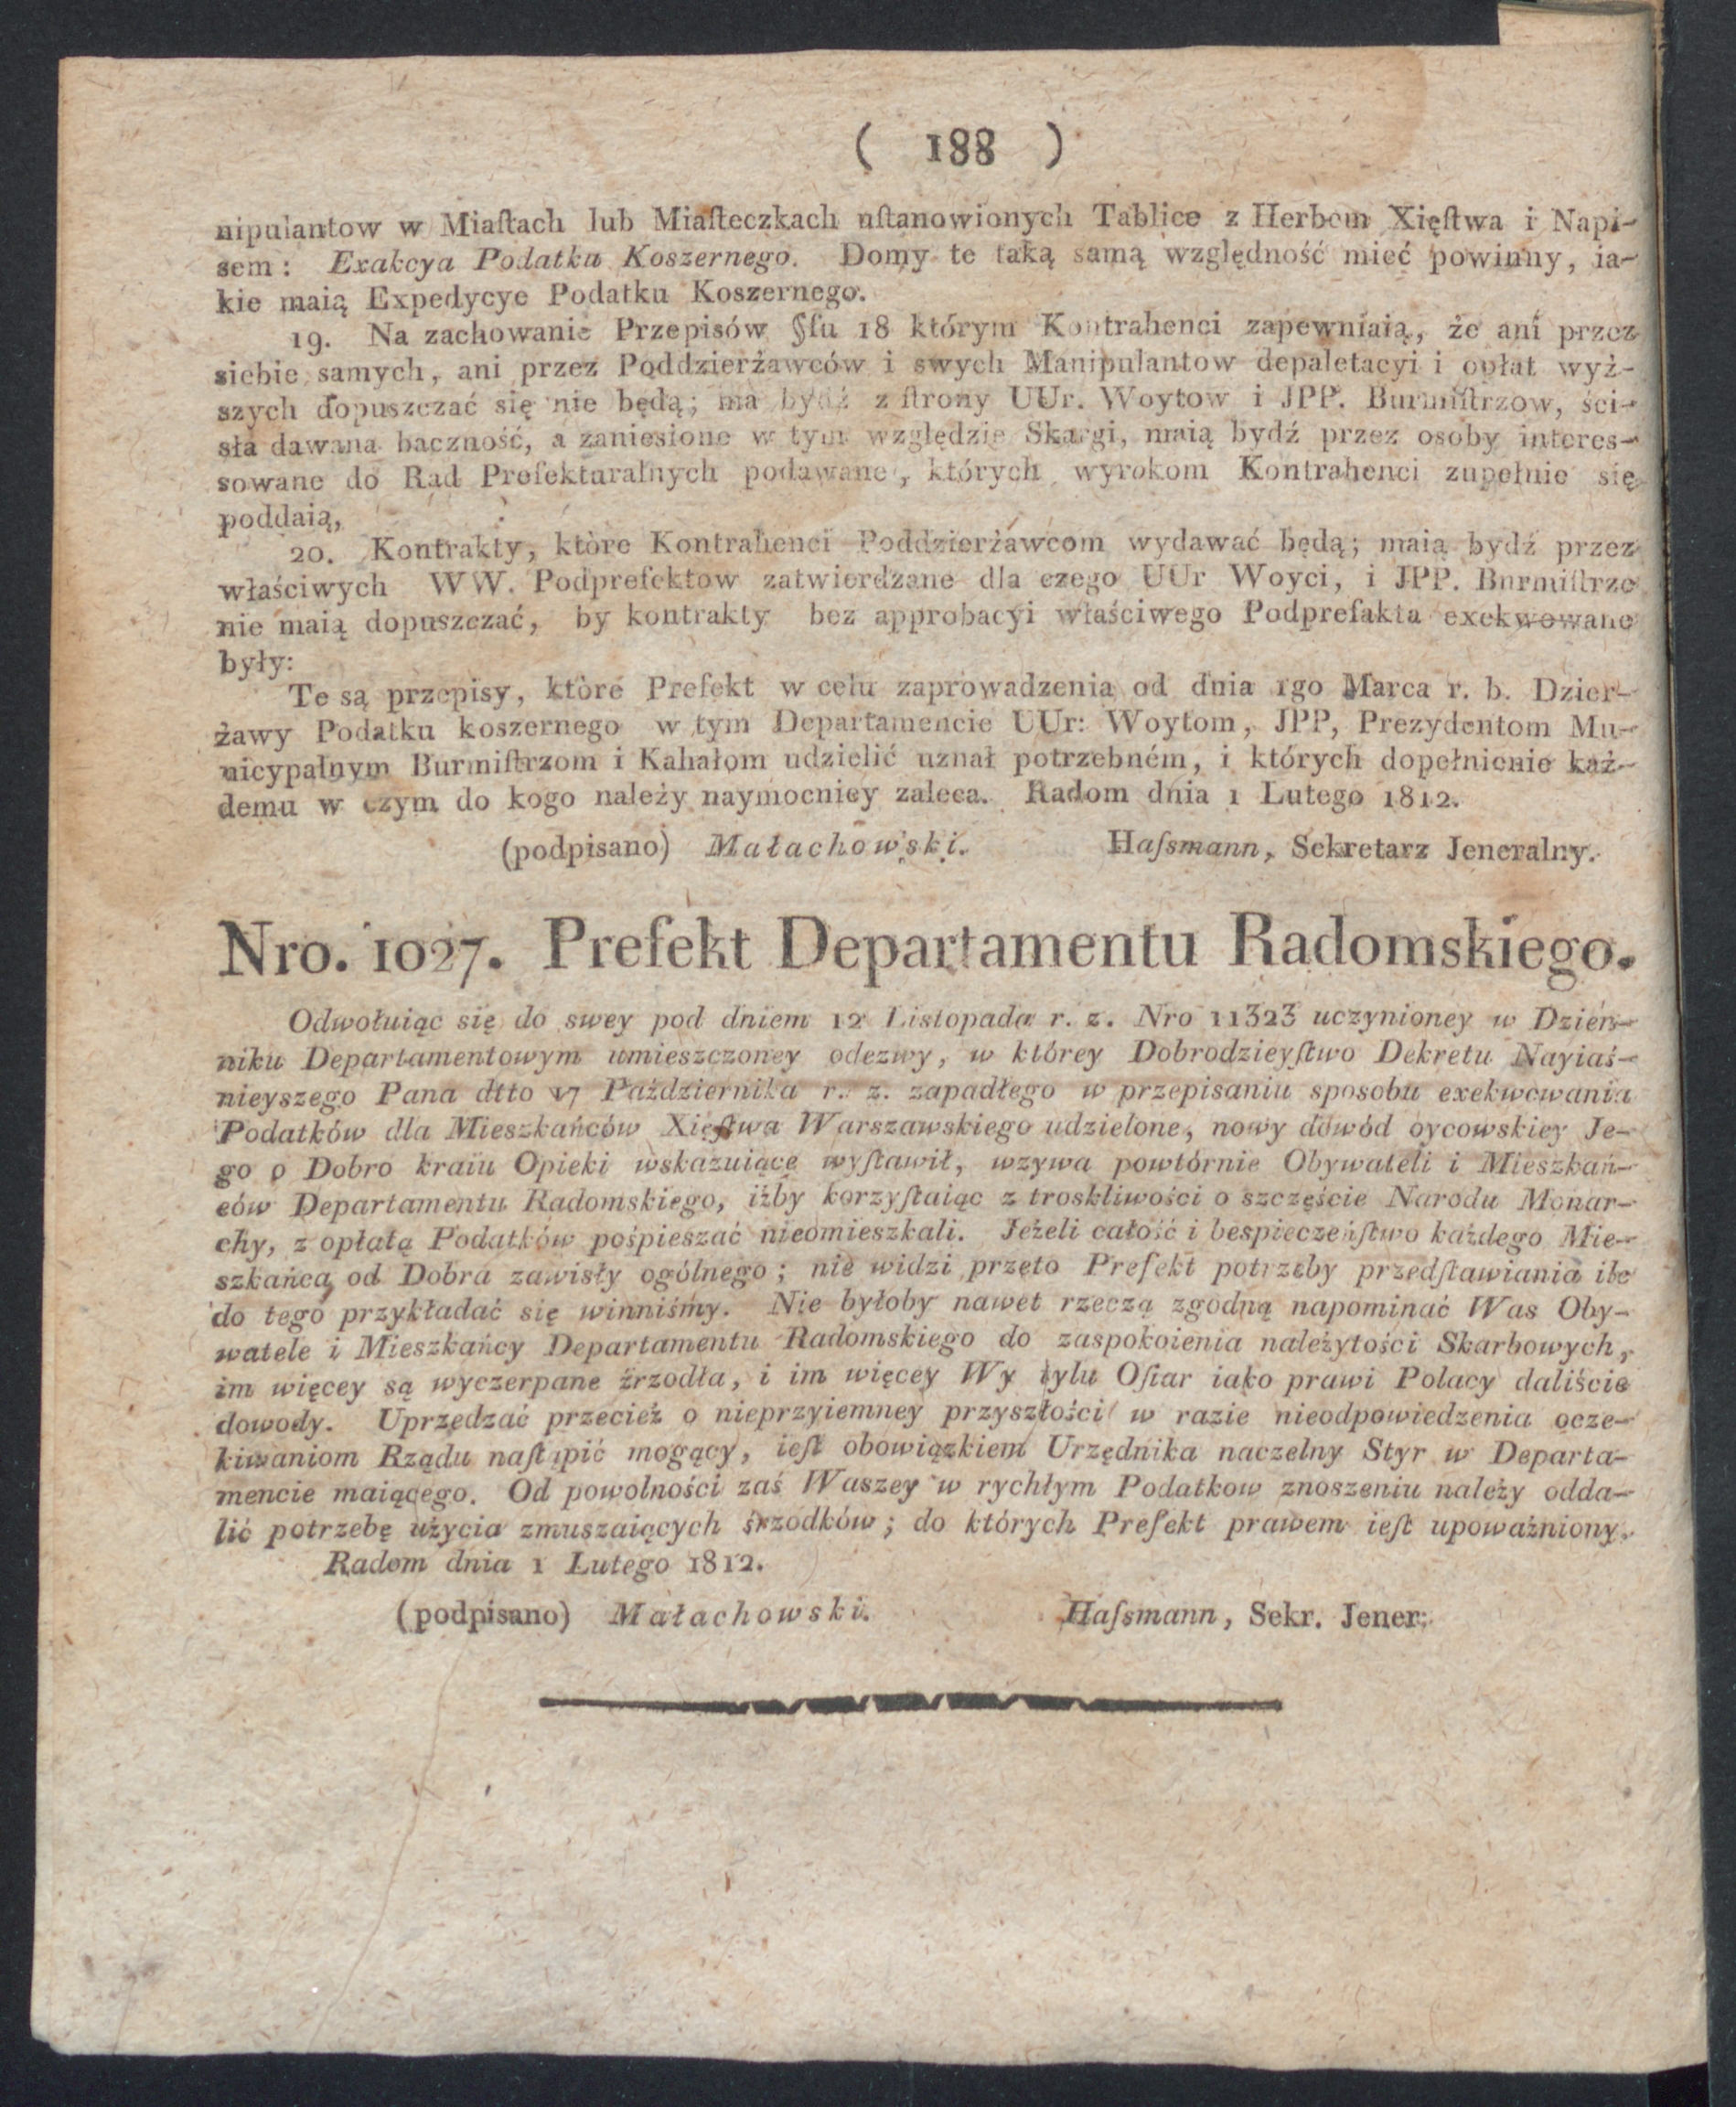 ( 188 )
nipulantow w Miaſtach lub Miaſteczkach uſtanowionych Tablice z Herbem Xięſtwa i Napi-
sem: Exakcya Podatku Koszernego. Domy te taką samą względność mieć powinny, ia-
kie maią Expedycye Podatku Koszernego.
19. Na zachowanie Przepisów §fu 18 którym Kontrahenci zapewniaią, że ani przez
siebie samych, ani przez Poddzierżawców i swych Manipulantow depaletacyi i opłat wyż-
szych dopuszczać się nie będą; ma bydź z ſtrony UUr. Woytow i JPP. Burmiſtrzow, ści-
sła dawana baczność, a zaniesione w tym względzie Skargi, maią bydź przez osoby interes-
sowane do Rad Prefekturalnych podawane, których wyrokom Kontrahenci zupełnie się
poddaią,
20. Kontrakty, które Kontrahenci Poddzierżawcom wydawać będą; maią bydź przez
właściwych WW. Podprefektow zatwierdzane dla czego UUr Woyci, i JPP. Burmiſtrze
nie maią dopuszczać, by kontrakty bez approbacyi właściwego Podprefakta exekwowane
były:
Te są przepisy, które Prefekt w celu zaprowadzenia od dnia 1go Marca r. b. Dzier-
żawy Podatku koszernego w tym Departamencie UUr: Woytom, JPP, Prezydentom Mu-
nicypalnym Burmiſtrzom i Kahałom udzielić uznał potrzebném, i których dopełnienie każ-
demu w czym do kogo należy naymocniey zaleca. Radom dnia 1 Lutego 1812.
(podpisano) Małachowski. Haſsmann, Sekretarz Jeneralny.
Nro. 1027. Prefekt Departamentu Radomskiego.
Odwołuiąc się do swey pod dniem 12 Listopada r. z. Nro 11323 uczynioney w Dzien-
niku Departamentowym umieszczoney odezwy, w którey Dobrodzieyſtwo Dekretu Nayiaś-
nieyszego Pana dtto 17 Października r. z. zapadłego w przepisaniu sposobu exekwowania
Podatków dla Mieszkańców Xięſtwa Warszawskiego udzielone, nowy dowód oycowskiey Je-
go o Dobro kraiu Opieki wskazuiące wyſtawił, wzywa powtórnie Obywateli i Mieszkań-
ców Departamentu Radomskiego, iżby korzyſtaiąc z troskliwości o szczęście Narodu Monar-
chy, z opłatą Podatków pośpieszać nieomieszkali. Jeżeli całość i bespieczeńſtwo każdego Mie-
szkańca od Dobra zawisły ogólnego; nie widzi przeto Prefekt potrzeby przedſtawiania ile
do tego przykładać się winniśmy. Nie byłoby nawet rzeczą zgodną napominać Was Oby-
watele i Mieszkańcy Departamentu Radomskiego do zaspokoienia należytości Skarbowych,
im więcey są wyczerpane źrzodła, i im więcey Wy tylu Ofiar iako prawi Polacy daliście
dowody. Uprzedzać przecież o nieprzyiemney przyszłości w razie nieodpowiedzenia ocze-
kiwaniom Rządu naſtąpić mogący, ieſt obowiązkiem Urzędnika naczelny Styr w Departa-
mencie maiącego. Od powolności zaś Waszey w rychłym Podatkow znoszeniu należy odda-
lić potrzebę użycia zmuszaiących śrzodków; do których Prefekt prawem ieſt upoważniony.
Radom dnia 1 Lutego 1812.
(podpisano) Małachowski. Haſsmann, Sekr. Jener: